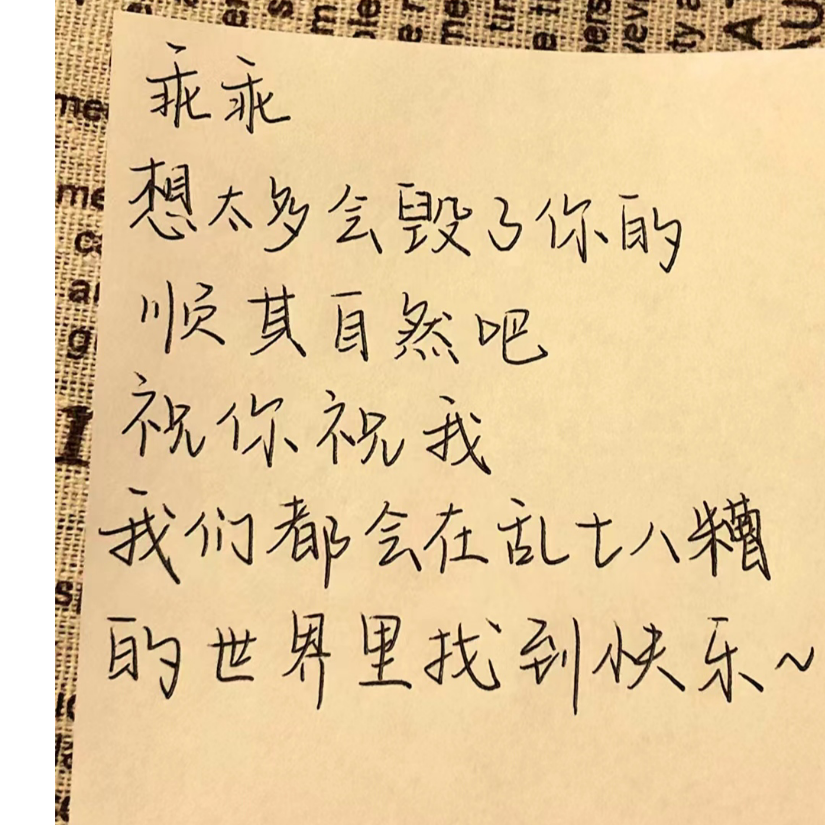 乖乖
想太多会毁了你的
顺其自然吧
祝你祝我
我们都会在乱七八糟
的世界里找到快乐~